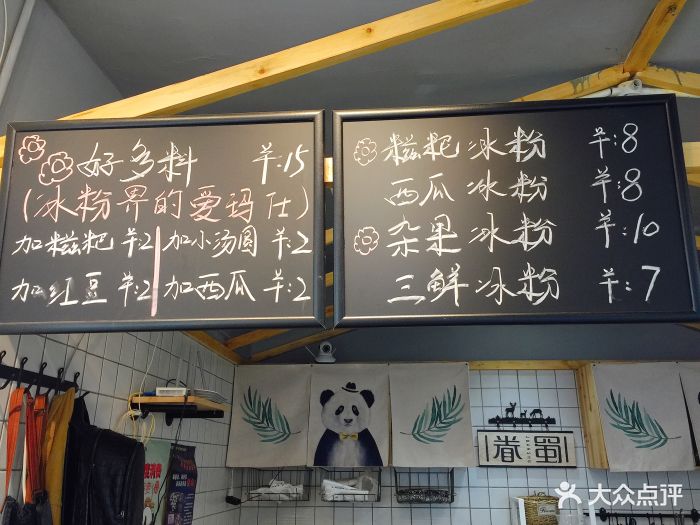 好多料 羊:15
(冰粉界的爱玛仕)
加糍粑 羊:2 加小汤圆 羊:2
加红豆 羊:2 加西瓜 羊:2
糍粑冰粉 羊:8
西瓜冰粉 羊:8
杂果冰粉 羊:10
三鲜冰粉 羊:7
眷蜀
大众点评